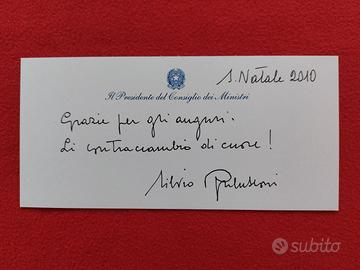 S. Natale 2010
Il Presidente del Consiglio dei Ministri
Grazie per gli auguri.
Li contraccambio di cuore!
Silvio Berlusconi
subito